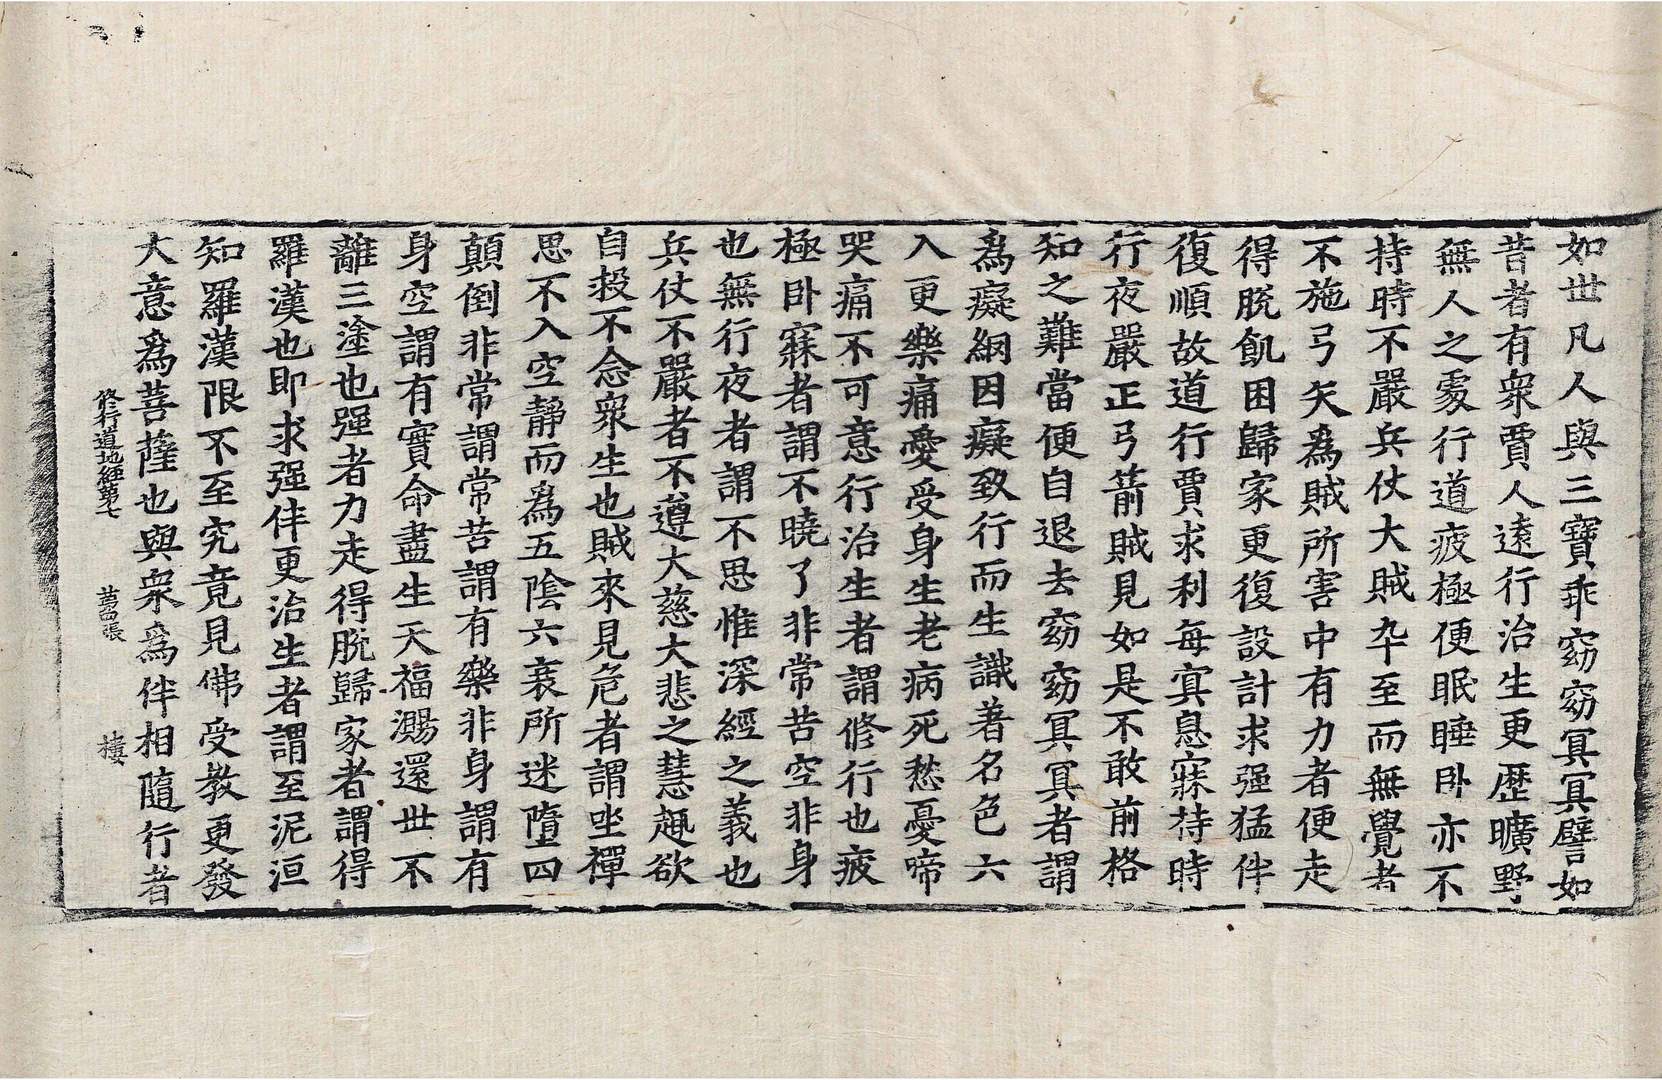 如世凡人與三寶乖窈窈冥冥譬如
昔者有衆賈人遠行治生更歷曠野
無人之處行道疲極便眠睡卧亦不
持時不嚴兵仗大賊卒至而無覺者
不施弓矢爲賊所害中有力者便走
得脫飢困歸家更復設計求强猛伴
復順故道行賈求利每寘息寐持時
行夜嚴正弓箭賊見如是不敢前格
知之難當便自退去窈窈冥冥者謂
爲癡網因癡致行而生識著名色六
入更樂痛愛受身生老病死愁憂啼
哭痛不可意行治生者謂修行也疲
極卧寐者謂不曉了非常苦空非身
也無行夜者謂不思惟深經之義也
兵仗不嚴者不遵大慈大悲之慧趣欲
自投不念衆生也賊來見危者謂坐禪
思不入空靜而爲五陰六衰所迷墮四
顛倒非常謂常苦謂有樂非身謂有
身空謂有實命盡生天福㵐還世不
離三塗也强者力走得脫歸家者謂得
羅漢也即求强伴更治生者謂至泥洹
知羅漢限不至究竟見佛受教更發
大意爲菩薩也與衆爲伴相隨行者
修行道地經第七　張　樓